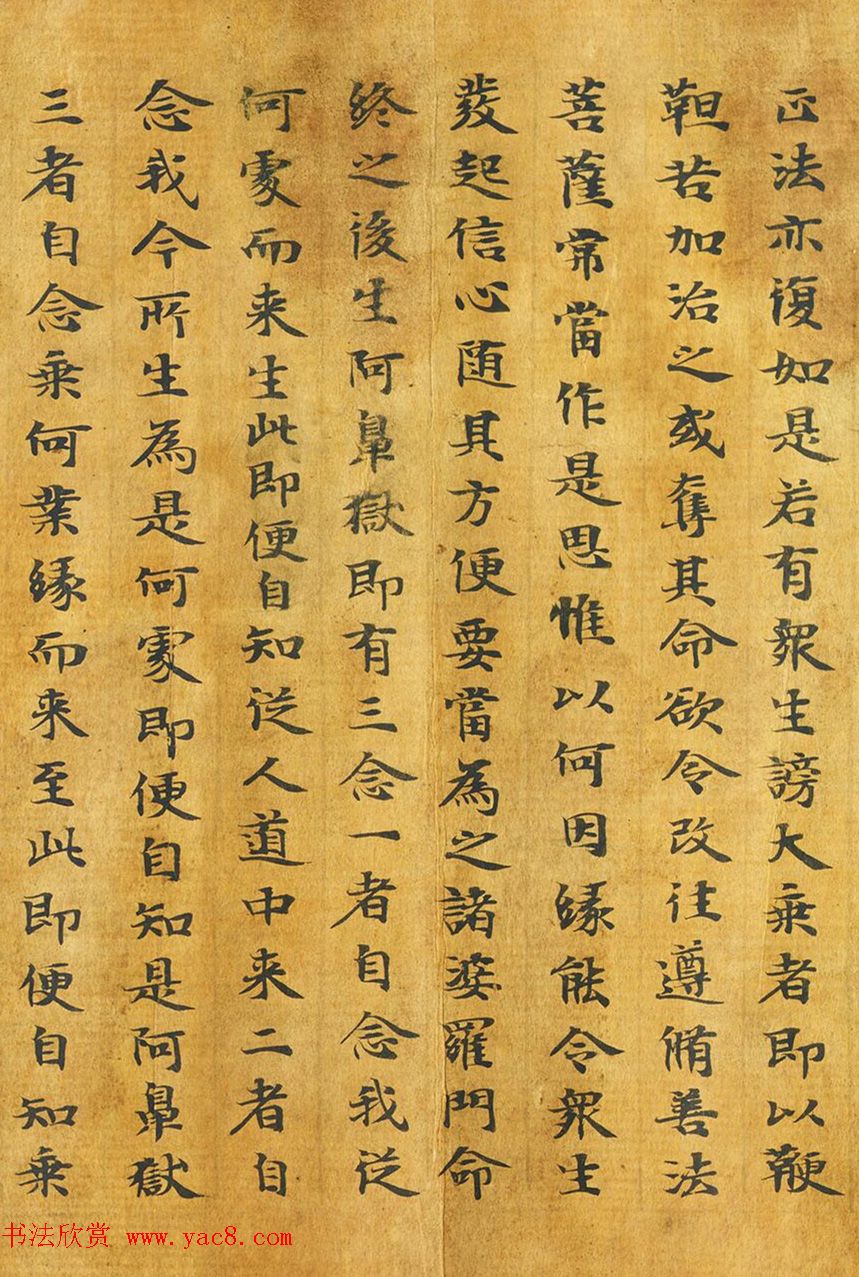 正法亦復如是若有眾生謗大乘者即以鞭
靼苦加治之或奪其命欲令改往遵脩善法
菩薩常當作是思惟以何因緣能令眾生
發起信心随其方便要當為之諸婆羅門命
終之後生阿鼻獄即有三念一者自念我從
何處而来生此即便自知從人道中来二者自
念我今所生為是何處即便自知是阿鼻獄
三者自念乘何業緣而来至此即便自知乘
书法欣赏 www.yac8.com